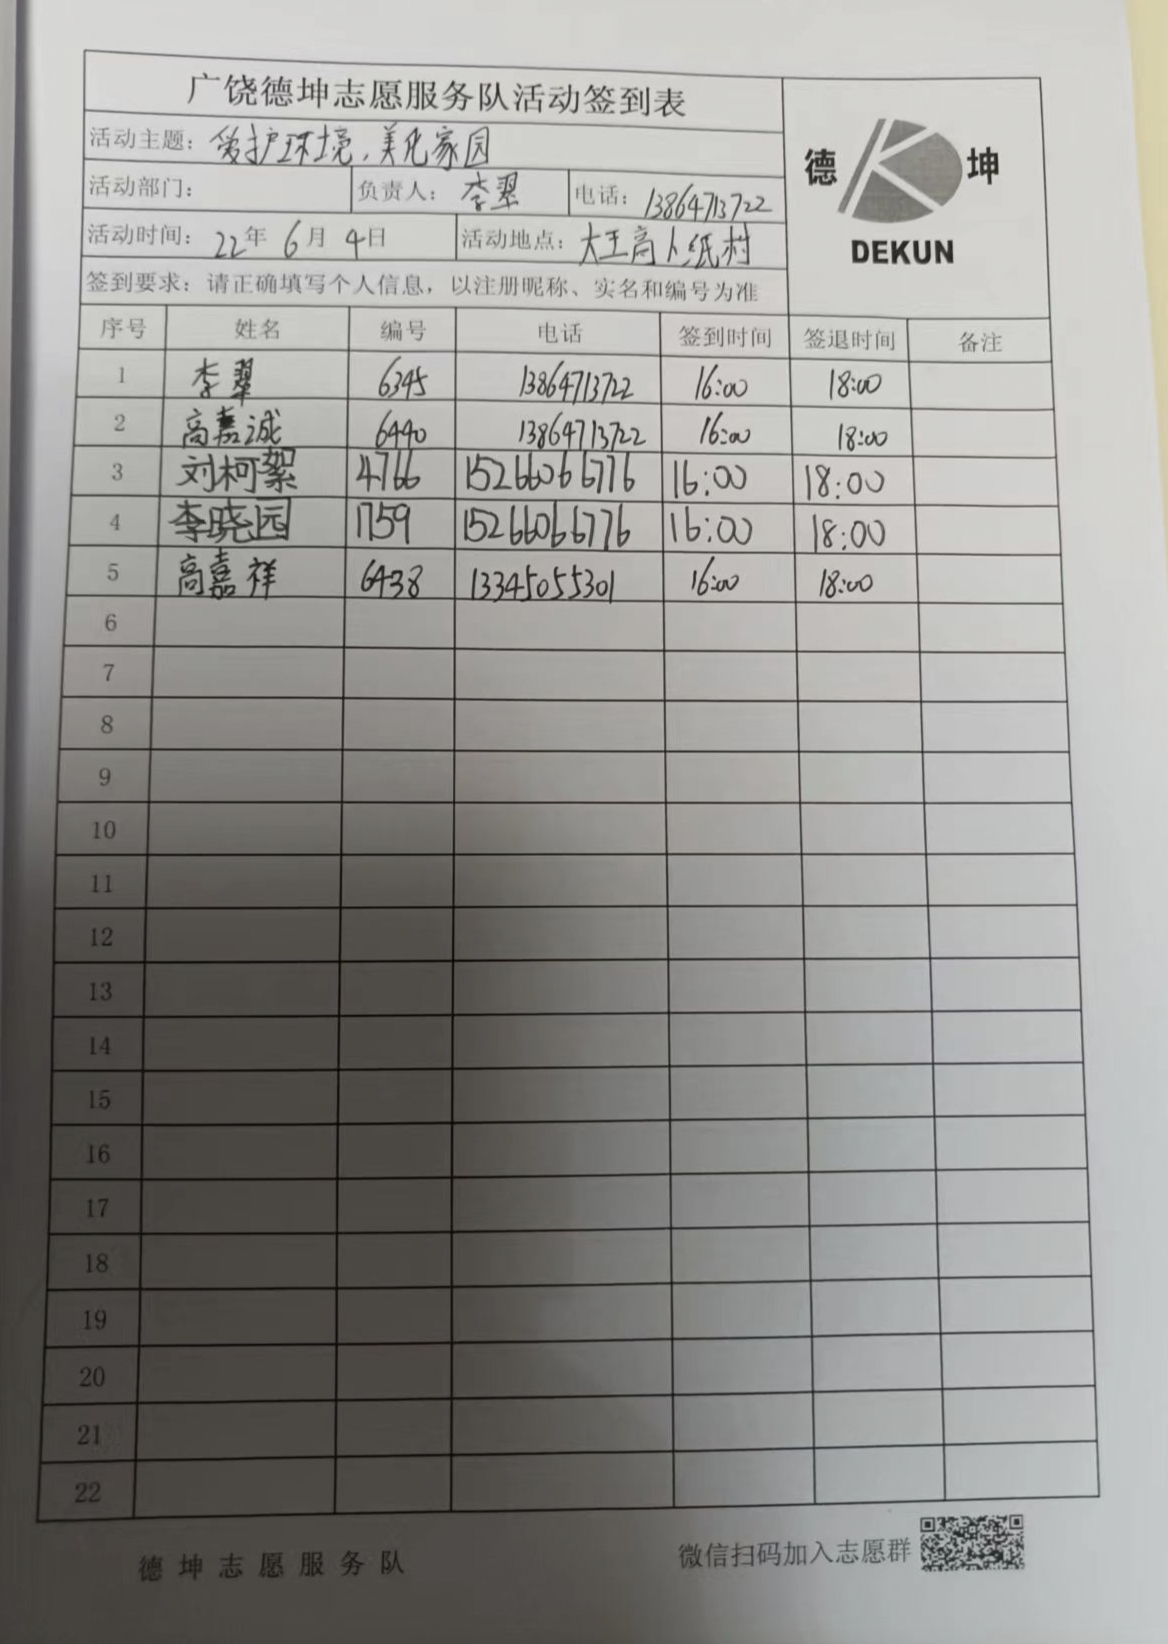 广饶德坤志愿服务队活动签到表
德 坤
DEKUN
活动主题：爱护环境，美化家园
活动部门： 负责人：李翠 电话：13864713722
活动时间：22年6月4日 活动地点：大王高卜纸村
签到要求：请正确填写个人信息，以注册昵称、实名和编号为准
序号 姓名 编号 电话 签到时间 签退时间 备注
1 李翠 6345 13864713722 16:00 18:00
2 高嘉诚 6440 13864713722 16:00 18:00
3 刘柯絮 4766 15266066776 16:00 18:00
4 李晓园 1759 15266066776 16:00 18:00
5 高嘉祥 6438 13345055301 16:00 18:00
6
7
8
9
10
11
12
13
14
15
16
17
18
19
20
21
22
德坤志愿服务队 微信扫码加入志愿群